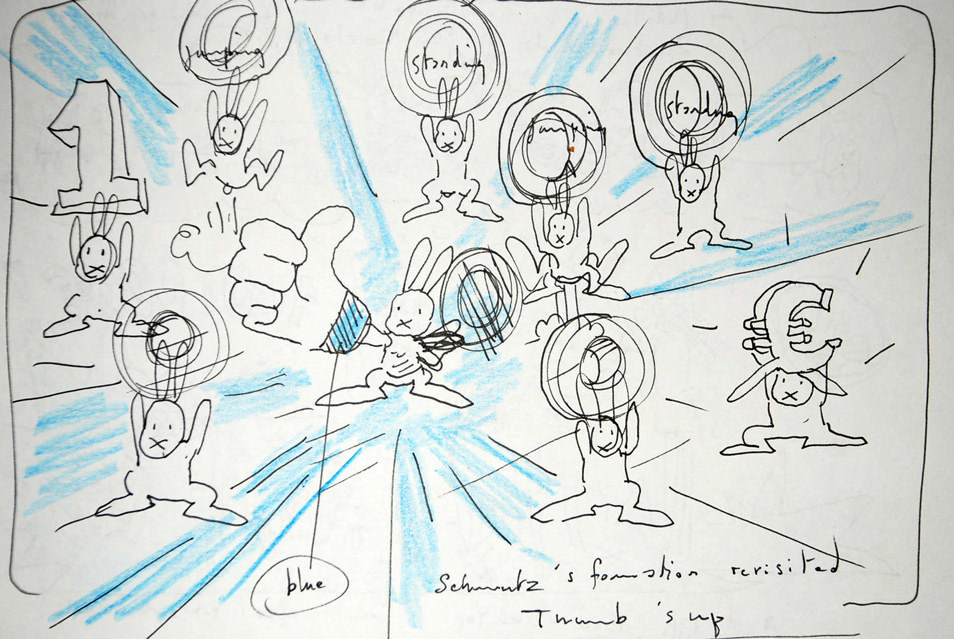 jumping
standing
standing
jumping
1
€
blue
Schmutz's formation revisited
Thumb's up